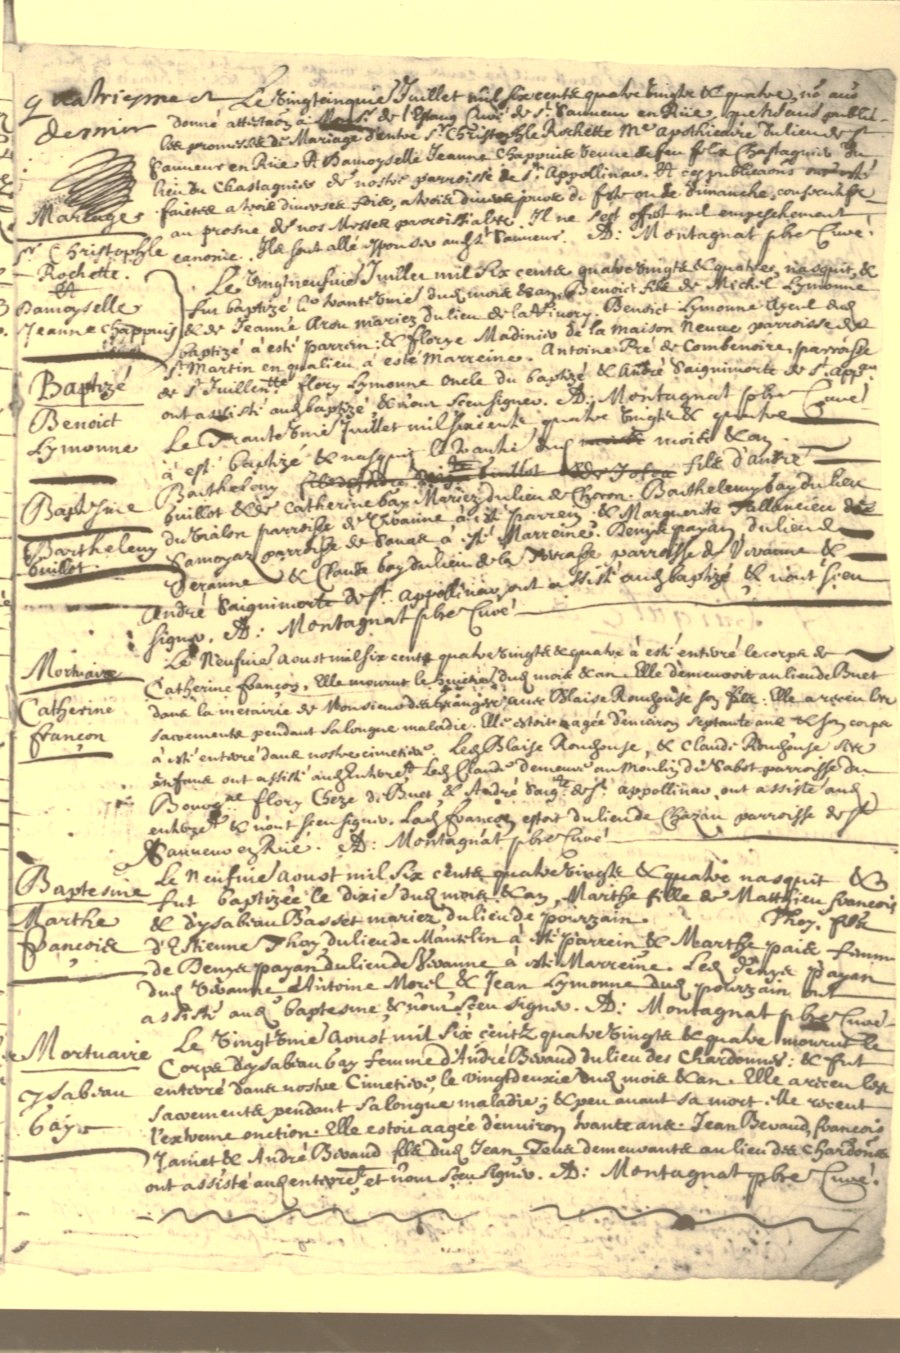 quatriesme et
dernier
Mariage
Sr Christophle
Rochette.
et
Damoyselle
Jeanne Chappuis
Le vingtcinquie Juillet mil six cents quatre vingts & quatre, nō avō
donné attestaōn à Sr. de l'Estang Curé de St. Sauveur en Rüe, que nō avō publié
les promesses de Mariage d'entre Sr. Christophle Rochette Me. Apothicaire du lieu de St
Sauveur en Rüe. Et Damoyselle Jeanne Chappuis veuve de feu felix Chastagnier du
lieu du Chastagnier de nostre parroisse de St. Appollinar. Et ces publicaōns ont esté
faittes a trois diverses fois, a trois divers jours de feste ou de dimanche, consecutifs
au prosne de nos Messes parroissiales. Il ne s'est offert nul empeschement
canonic. Ils sont allé espouser aud St Sauveur. A: Montagnat pbre Curé.
Baptizé
Benoict
Lymonne
Le vingtneufuie Juillet mil six cents quatre vingts & quatre, nasquit, &
fut baptizé le trantiesme dud mois & an, Benoict fils de Michel Lymonne
& de Jeanne Arou mariez du lieu de la Benoict Lymonne Ayeul dud
baptizé à esté parrein: & florye Madinier de la maison Neuve parroisse de
St. Martin en qualieu à esté Marreine. Antoine Pré de Combenoire, parroisse
de St. Juillien flory Lymonne oncle du baptizé & André Saignimorte de St. Appn
ont assisté aud baptizé, & n'ont sceu signer. A: Montagnat pbre Curé
Baptesme
Barthelemy
Guillot.
Le Trantiesme Juillet mil six cents quatre vingts & quatre
à esté baptizé & nasquit le dud mois & an
Barthelemy fils d'André
Guillot & de Catherine Gay Mariez du lieu de Choron. Barthelemy Gay du lieu
du Vialon parroisse de Vivanne à esté parrein. & Marguerite du
parroisse de à esté Marreine. Denys payan du lieu de
& Claude Gay du lieu de la Terrasse parroisse de Vivanne &
André Saignimorte de St. Appollinar, ont assisté aud baptizé & n'ont sceu
signer. A: Montagnat pbre Curé
Mortuaire
Catherine
françon
Le Neufuie Aoust mil six cents quatre vingts & quatre à esté enterré le corps de
Catherine françon, Elle mourut le huictie dud mois & an. Elle demeuroit au lieu de Buet
dans la metairie de Monsieur avec Blaise Rouchouse son fils. Elle a receu les
sacements pendant sa longue maladie. Elle estoit aagée d'environ septante ans & son corps
à esté enterré dans nostre cimetiere. Led Blaise Rouchouse, & Claude Rouchouse ses
enfans ont assisté aud Enterret Led Claude demeure au Moulin du Sabot parroisse du
flory Cheze de Buet & André Saigte. de St. Appollinar, ont assisté aud
enterret & n'ont sceu signer. Lad françon estoit du lieu de Chazau parroisse de St
Sauveur en Rüe. A: Montagnat pbre Curé
Baptesme
Marthe
françoise
Le Neufuie Aoust mil six cents quatre vingts & quatre nasquit &
fut baptizée le dixie dud mois & an, Marthe fille de Matthieu françois
& d'ysabeau Basset mariez du lieu de pourzain. Thoy. fils
d'Estienne Thoy du lieu de Mantelin à esté parrein & Marthe pais femme
de Denys payan du lieu de Vivanne à esté Marreine. Led Denys payan
dud Vivanne Antoine Morel & Jean Lymonne dud pourzain ont
assisté aud baptesme & n'ont sceu signer. A: Montagnat pbre Curé
Mortuaire
ysabeau
Gay
Le vingtiesme Aoust mil six centz quatre vingts & quatre mourut le
Corps d'ysabeau Gay femme d'André Bevaud du lieu des Chardonnes: & fut
enterré dans nostre Cimetiere, le vingtdeuxie dud mois & an. Elle a receu les
sacements pendant sa longue maladie; & peu avant sa mort elle receut
l'extreme onction. Elle estoit aagée d'environ trante ans. Jean Bevaud, françois
Jamet & André Bevaud fils dud Jean Tous demeurants au lieu des Chardonnes
ont assisté aud enterret, et n'ont sceu signer. A: Montagnat pbre Curé.